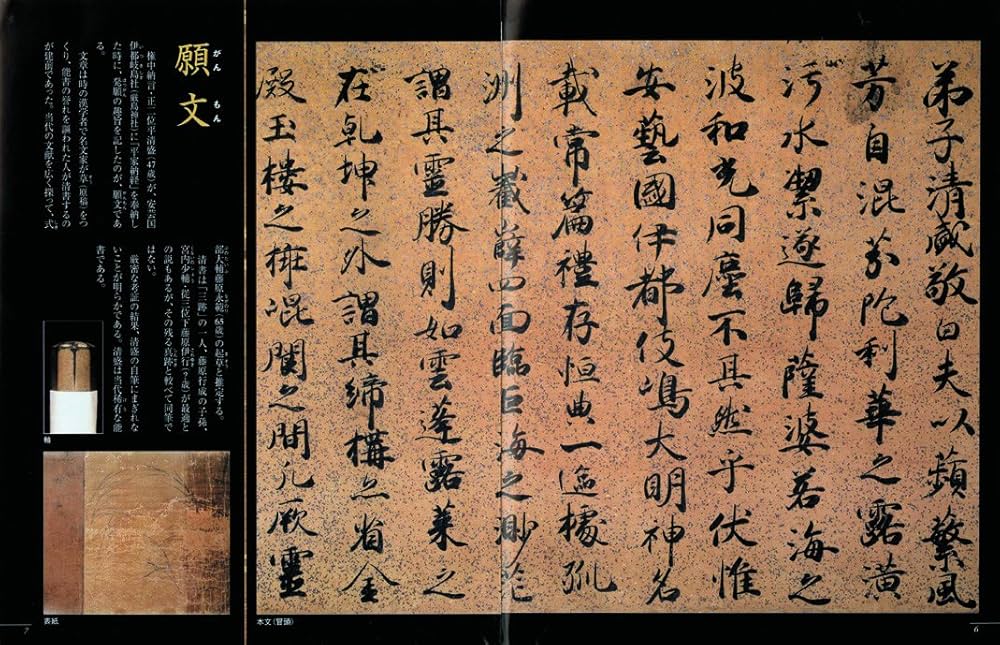 弟子清盛敬白夫以蘋蘩風
芳自混芬陀利華之露潢
汚水潔遂歸薩婆若海之
波和光同塵不其然乎伏惟
安藝國伊都伎嶋大明神名
載常篇禮存恒典一邊據孤
洲之巀嶭四面臨巨海之渺茫
謂其靈勝則如雲蓬露萊之
在乹坤之外謂其締構亦省金
殿玉樓之混閬之間凡厥靈
本文(冒頭)
6
願文
がんもん
権中納言・正二位平清盛(47歳)が、安芸国
伊都岐島社(厳島神社)に「平家納経」を奉納し
た時に、発願の趣旨を記したのが「願文」であ
る。
文章は時の漢学者で名文家が草(原稿)をつ
くり、能書の誉れを謳われた人が清書するの
が建前であった。当代の文献を広く探って、式
部大輔藤原永範(63歳)の起草と推定する。
清書は「三跡」の一人、藤原行成の子孫、
宮内少輔・従三位下藤原伊行(?歳)が最適と
の説もあるが、その残る真跡と較べて同筆で
はない。
厳密な考証の結果、清盛の自筆にまぎれな
いことが明らかである。清盛は当代稀有な能
書である。
軸
表紙
7